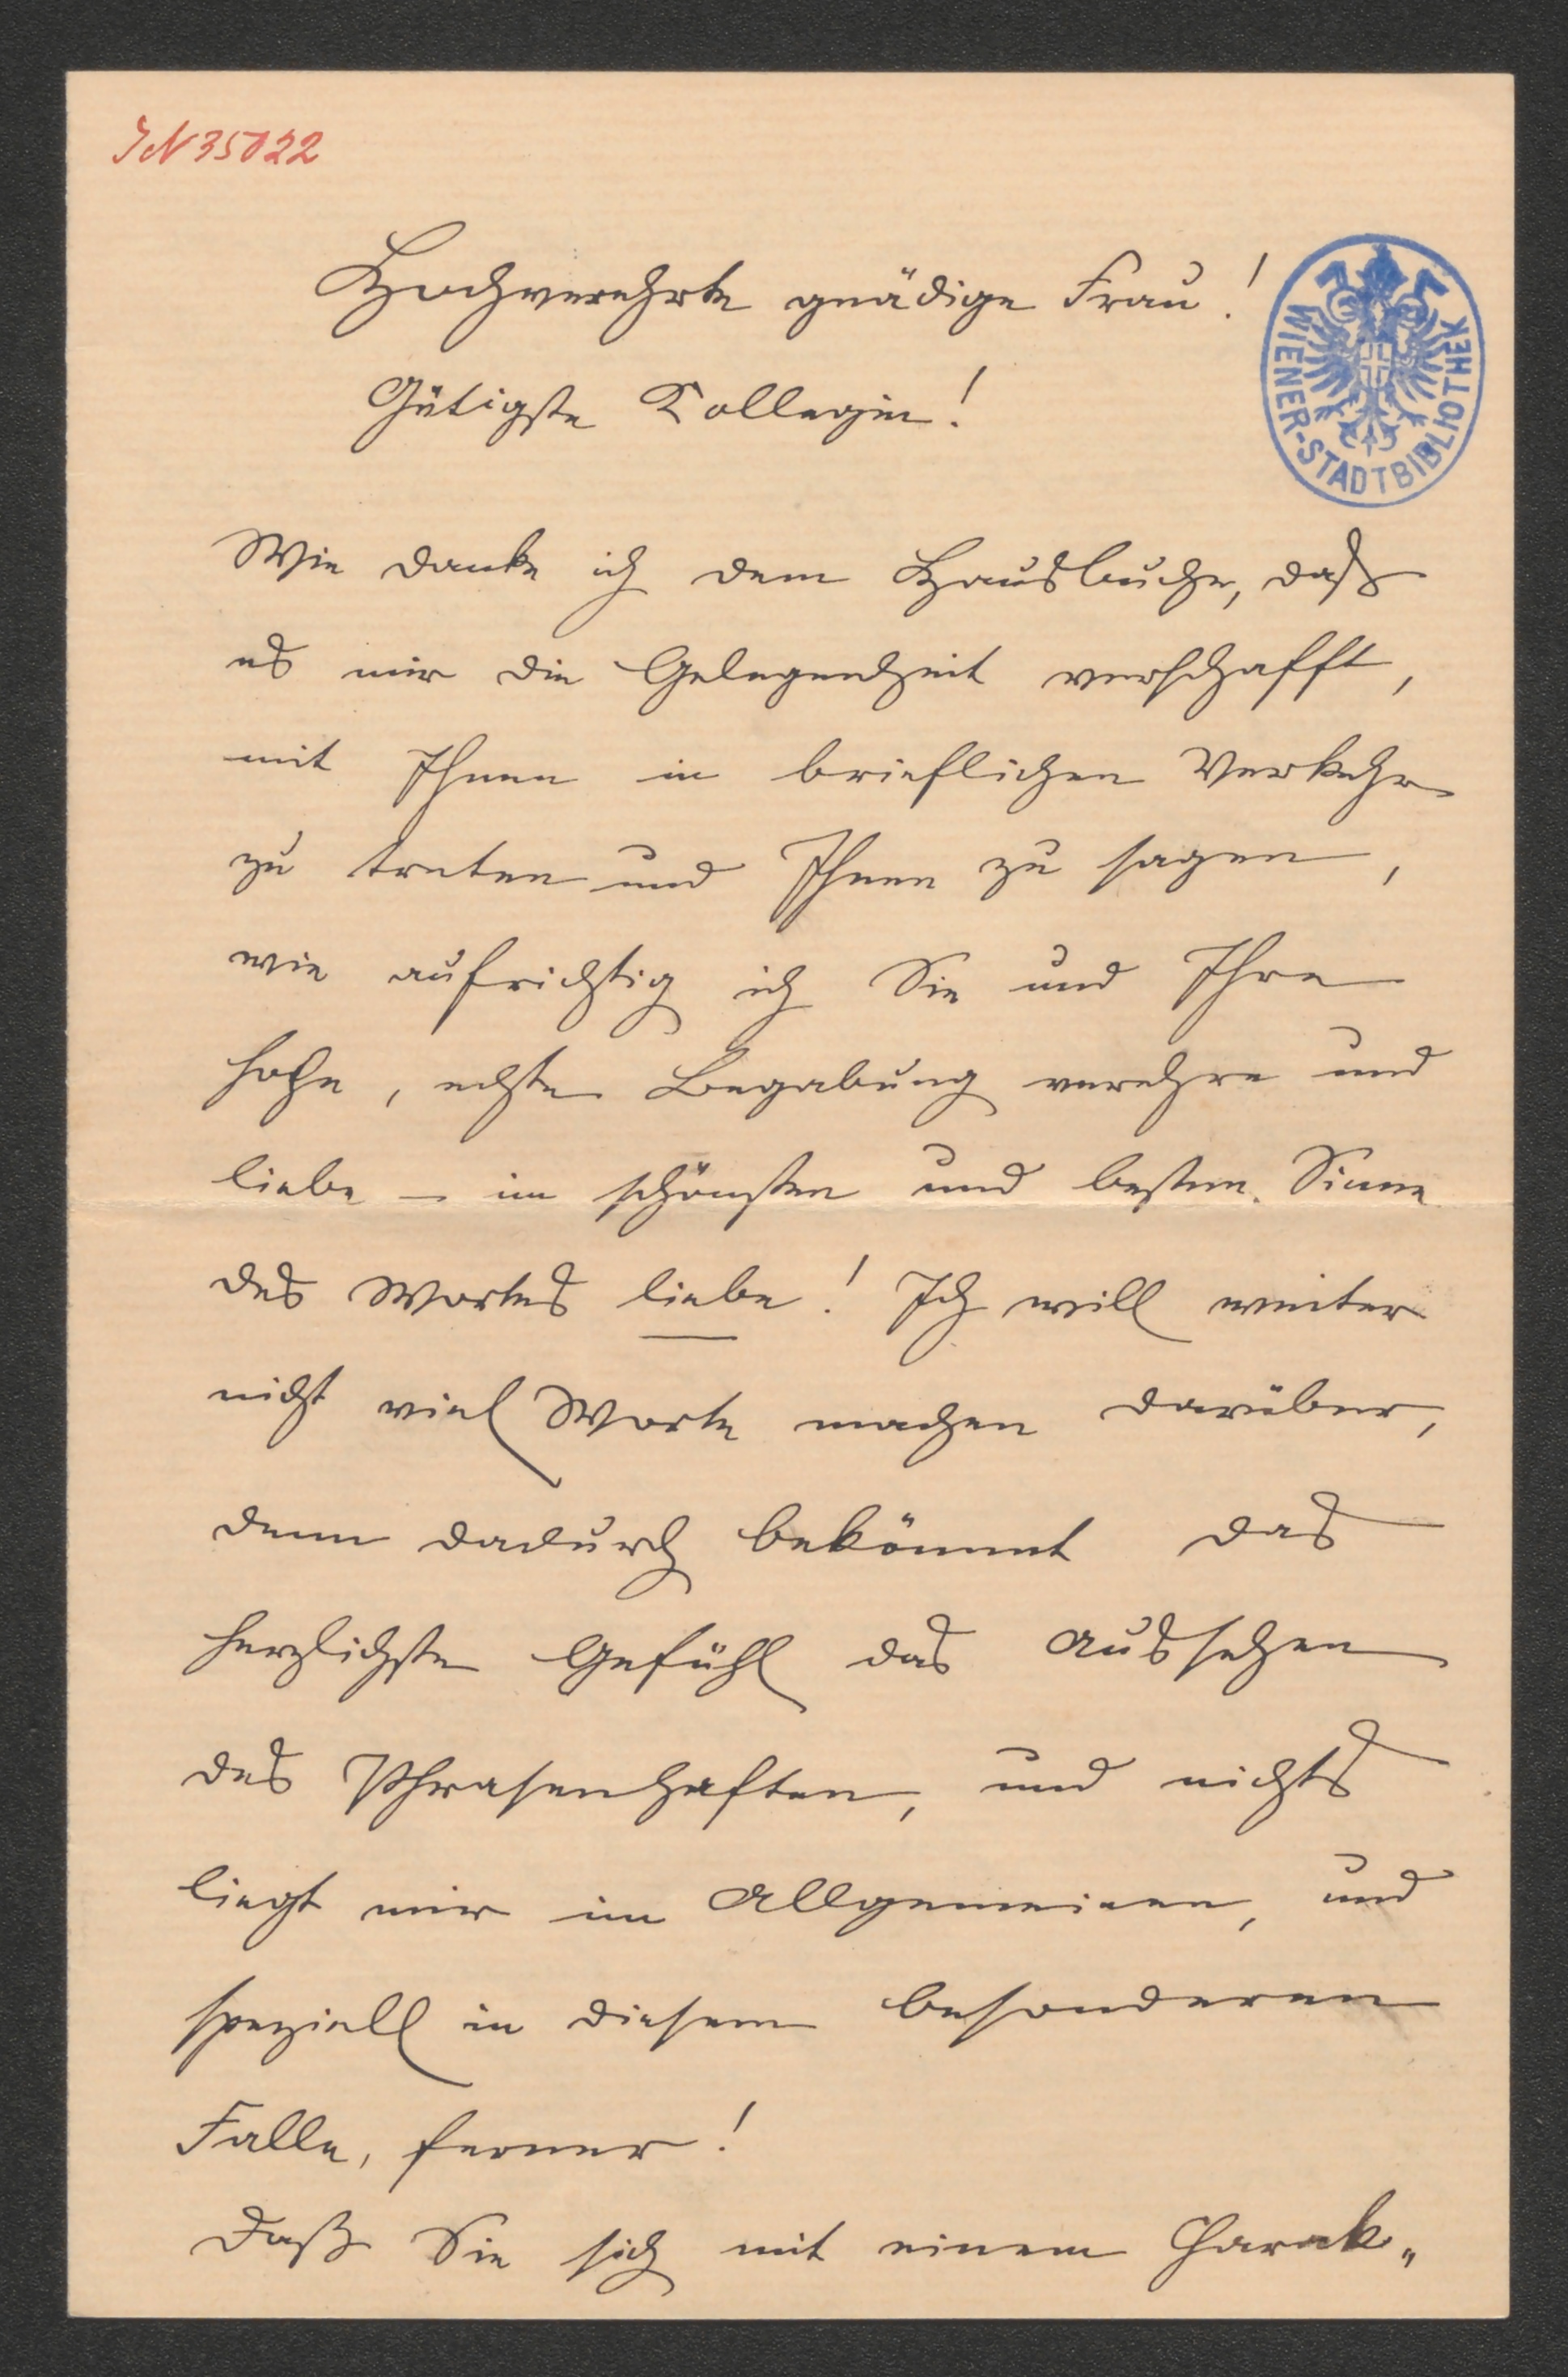 IN 35022
Hochverehrte gnädige Frau!
WIENER-STADTBIBLIOTHEK
Gütigste Kollegin!
Wie danke ich dem Hausbuche, daß
es mir die Gelegenheit verschafft,
mit Ihnen in brieflichen Verkehr
zu treten und Ihnen zu sagen,
wie aufrichtig ich Sie und Ihre
hohe, echte Begabung verehre und
liebe – im schönsten und besten Sinne
des Wortes liebe! Ich will weiter
nicht viel Worte machen darüber,
denn dadurch bekömmt das
herzlichste Gefühl das Aussehen
des Phrasenhaften, und nichts
liegt mir im Allgemeinen, und
speziell in diesem besonderen
Falle, ferner!
Daß Sie sich mit einem Charak„